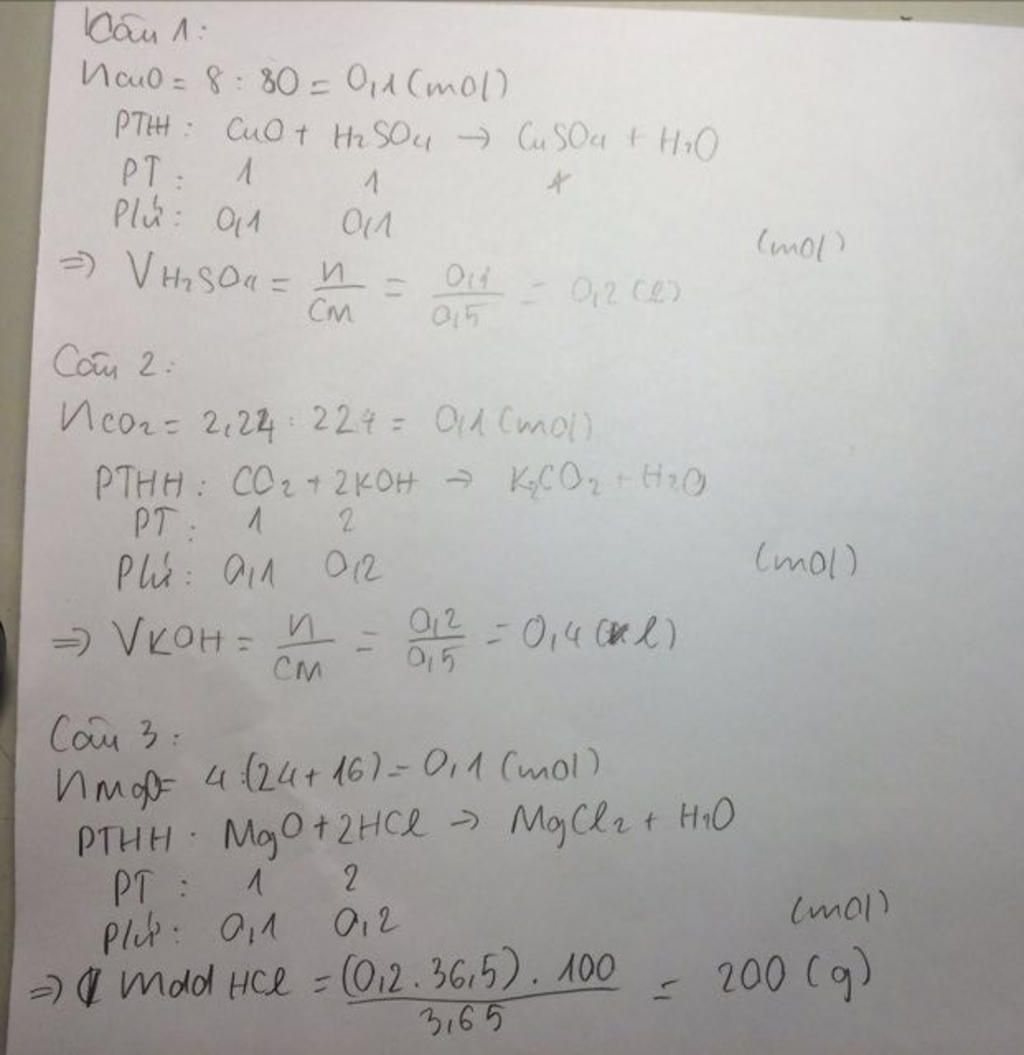 Câu 1:
nCuO = 8 : 80 = 0,1 (mol)
PTHH : CuO + H2SO4 → CuSO4 + H2O
PT : 1 1 1
P/ứ : 0,1 0,1 (mol)
⇒ VH2SO4 = n/CM = 0,1/0,5 = 0,2 (l)
Câu 2 :
nCO2 = 2,24 : 22,4 = 0,1 (mol)
PTHH : CO2 + 2KOH → K2CO2 + H2O
PT : 1 2
P/ứ : 0,1 0,2 (mol)
⇒ VKOH = n/CM = 0,2/0,5 = 0,4 (l)
Câu 3 :
nMgO = 4 : (24 + 16) = 0,1 (mol)
PTHH : MgO + 2HCl → MgCl2 + H2O
PT : 1 2
P/ứ : 0,1 0,2 (mol)
⇒ mdd HCl = (0,2 . 36,5) . 100 / 3,65 = 200 (g)